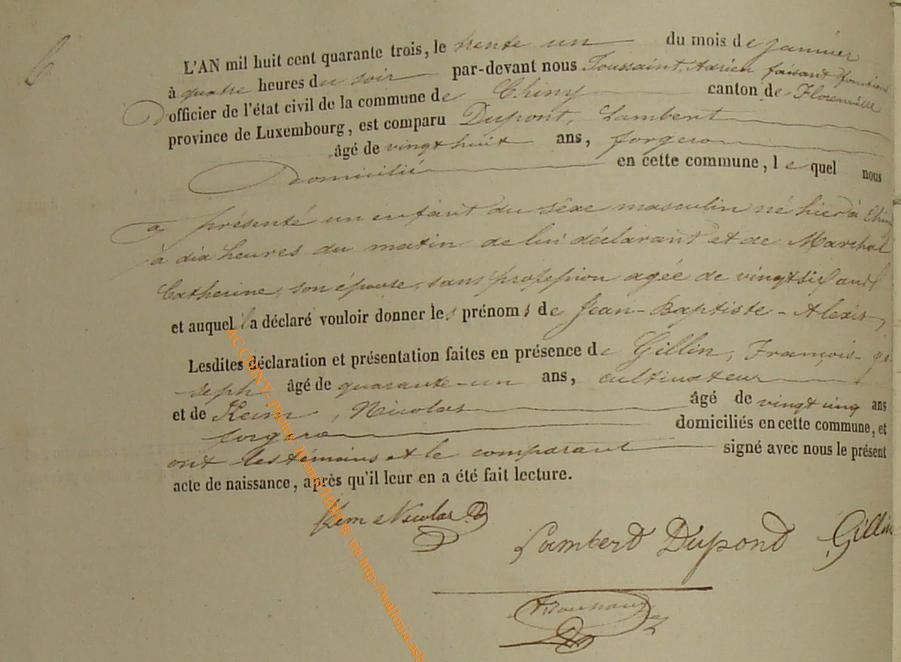 L'AN mil huit cent quarante trois, le trente un du mois de janvier
à quatre heures du soir par-devant nous Toussaint, Adrien faisant fonction
d'officier de l'état civil de la commune de Chiny canton de Florenville
province de Luxembourg, est comparu Dupont, Lambert
âgé de vingt huit ans, forgeron
domicilié en cette commune, lequel nous
a présenté un enfant du sèxe masculin né hier à Chiny
à dix heures du matin de lui déclarant et de Marchal
Catherine, son épouse, sans profession agée de vingt six ans
et auquel il a déclaré vouloir donner les prénoms de Jean-Baptiste-Alexis,
Lesdites déclaration et présentation faites en présence de Gillin, François-jo
seph âgé de quarante-un ans, cultivateur
et de Keim, Nicolas âgé de vingt cinq ans
forgeron domiciliés en cette commune, et
ont les témoins et le comparant signé avec nous le présent
acte de naissance, après qu'il leur en a été fait lecture.
Keim Nicolas
Lambert Dupont Gillin
Toussaint